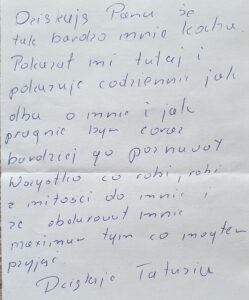 Dziękuję Panu że
tak bardzo mnie kocha.
Pokazał mi tutaj i
pokazuje codziennie jak
dba o mnie i jak
pragnie bym coraz
bardziej go poznawał
Wszystko co robi, robi
z miłości do mnie i
że obdarował mnie
maximum tym co mogłem
przyjąć.
Dziękuję Tatusiu